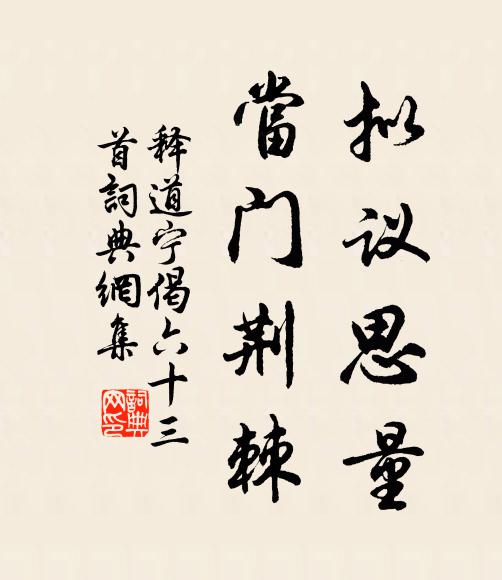 拟议思量
當门荆棘
释道宁偈六十三
首詞典網集
詞典
网印